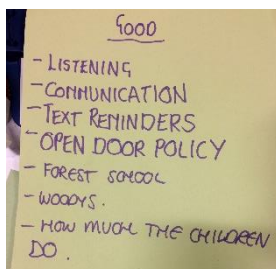 GOOD
- LISTENING
- COMMUNICATION
- TEXT REMINDERS
- OPEN DOOR POLICY
- FOREST SCHOOL
- WOODYS.
- HOW MUCH THE CHILDREN
DO.